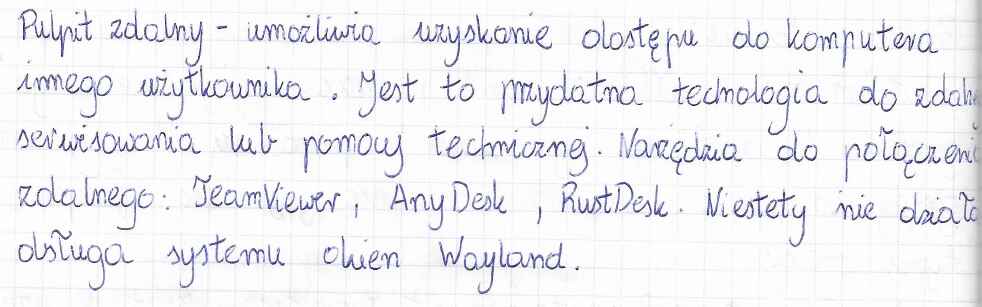 Pulpit zdalny - umożliwia uzyskanie dostępu do komputera
innego użytkownika. Jest to przydatna technologia do zdaln
serwisowania lub pomocy technicznej. Narzędzia do połączeni
zdalnego: TeamViewer, AnyDesk, RustDesk. Niestety nie działa
obsługa systemu okien Wayland.